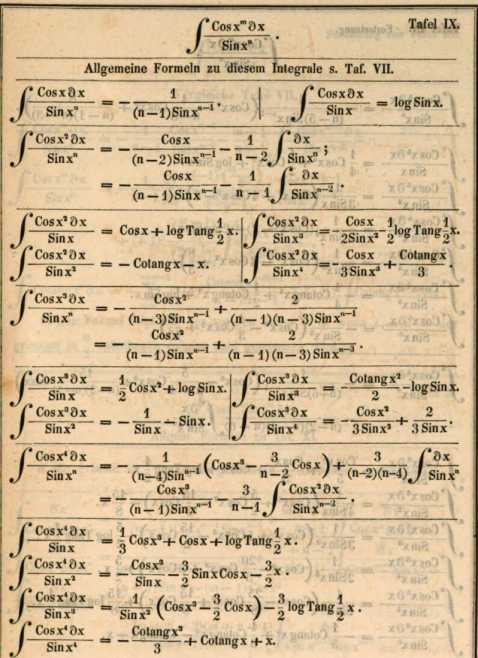 ∫ Cosx^m ∂x / Sinx^n . Tafel IX.
Allgemeine Formeln zu diesem Integrale s. Taf. VII.
∫ Cosx∂x / Sinx^n = 1 / (n−1)Sinx^(n−1) . ∫ Cosx∂x / Sinx = logSinx.
∫ Cosx² ∂x / Sinx^n = − Cosx / (n−2)Sinx^(n−1) − 1/(n−2) ∫ ∂x / Sinx^n ;
= − Cosx / (n−1)Sinx^(n−1) − 1/(n−1) ∫ ∂x / Sinx^(n−2) .
∫ Cosx² ∂x / Sinx = Cosx + log Tang ½ x. ∫ Cosx² ∂x / Sinx³ = − Cosx / 2Sinx² − ½ log Tang ½ x.
∫ Cosx² ∂x / Sinx² = − Cotang x − x. ∫ Cosx² ∂x / Sinx⁴ = − Cosx / 3Sinx³ + Cotang x / 3 .
∫ Cosx³ ∂x / Sinx^n = − Cosx² / (n−3)Sinx^(n−1) + 2 / (n−1)(n−3)Sinx^(n−1)
= − Cosx² / (n−1)Sinx^(n−1) + 2 / (n−1)(n−3)Sinx^(n−3) .
∫ Cosx³ ∂x / Sinx = ½ Cosx² + log Sinx. ∫ Cosx³ ∂x / Sinx³ = − Cotang x² / 2 − log Sinx.
∫ Cosx³ ∂x / Sinx² = − 1 / Sinx − Sinx. ∫ Cosx³ ∂x / Sinx⁴ = − Cosx² / 3Sinx³ + 2 / 3Sinx .
∫ Cosx⁴ ∂x / Sinx^n = − 1 / (n−4)Sin^(n−1) (Cosx³ − 3/(n−2) Cosx) + 3 / (n−2)(n−4) ∫ ∂x / Sinx^n
= − Cosx³ / (n−1)Sinx^(n−1) − 3/(n−1) ∫ Cosx² ∂x / Sinx^(n−2) .
∫ Cosx⁴ ∂x / Sinx = ⅓ Cosx³ + Cosx + log Tang ½ x .
∫ Cosx⁴ ∂x / Sinx² = − Cosx³ / Sinx − 3/2 Sinx Cosx − 3/2 x .
∫ Cosx⁴ ∂x / Sinx³ = 1 / Sinx² (Cosx³ − 3/2 Cosx) − 3/2 log Tang ½ x .
∫ Cosx⁴ ∂x / Sinx⁴ = − Cotang x³ / 3 + Cotang x + x.